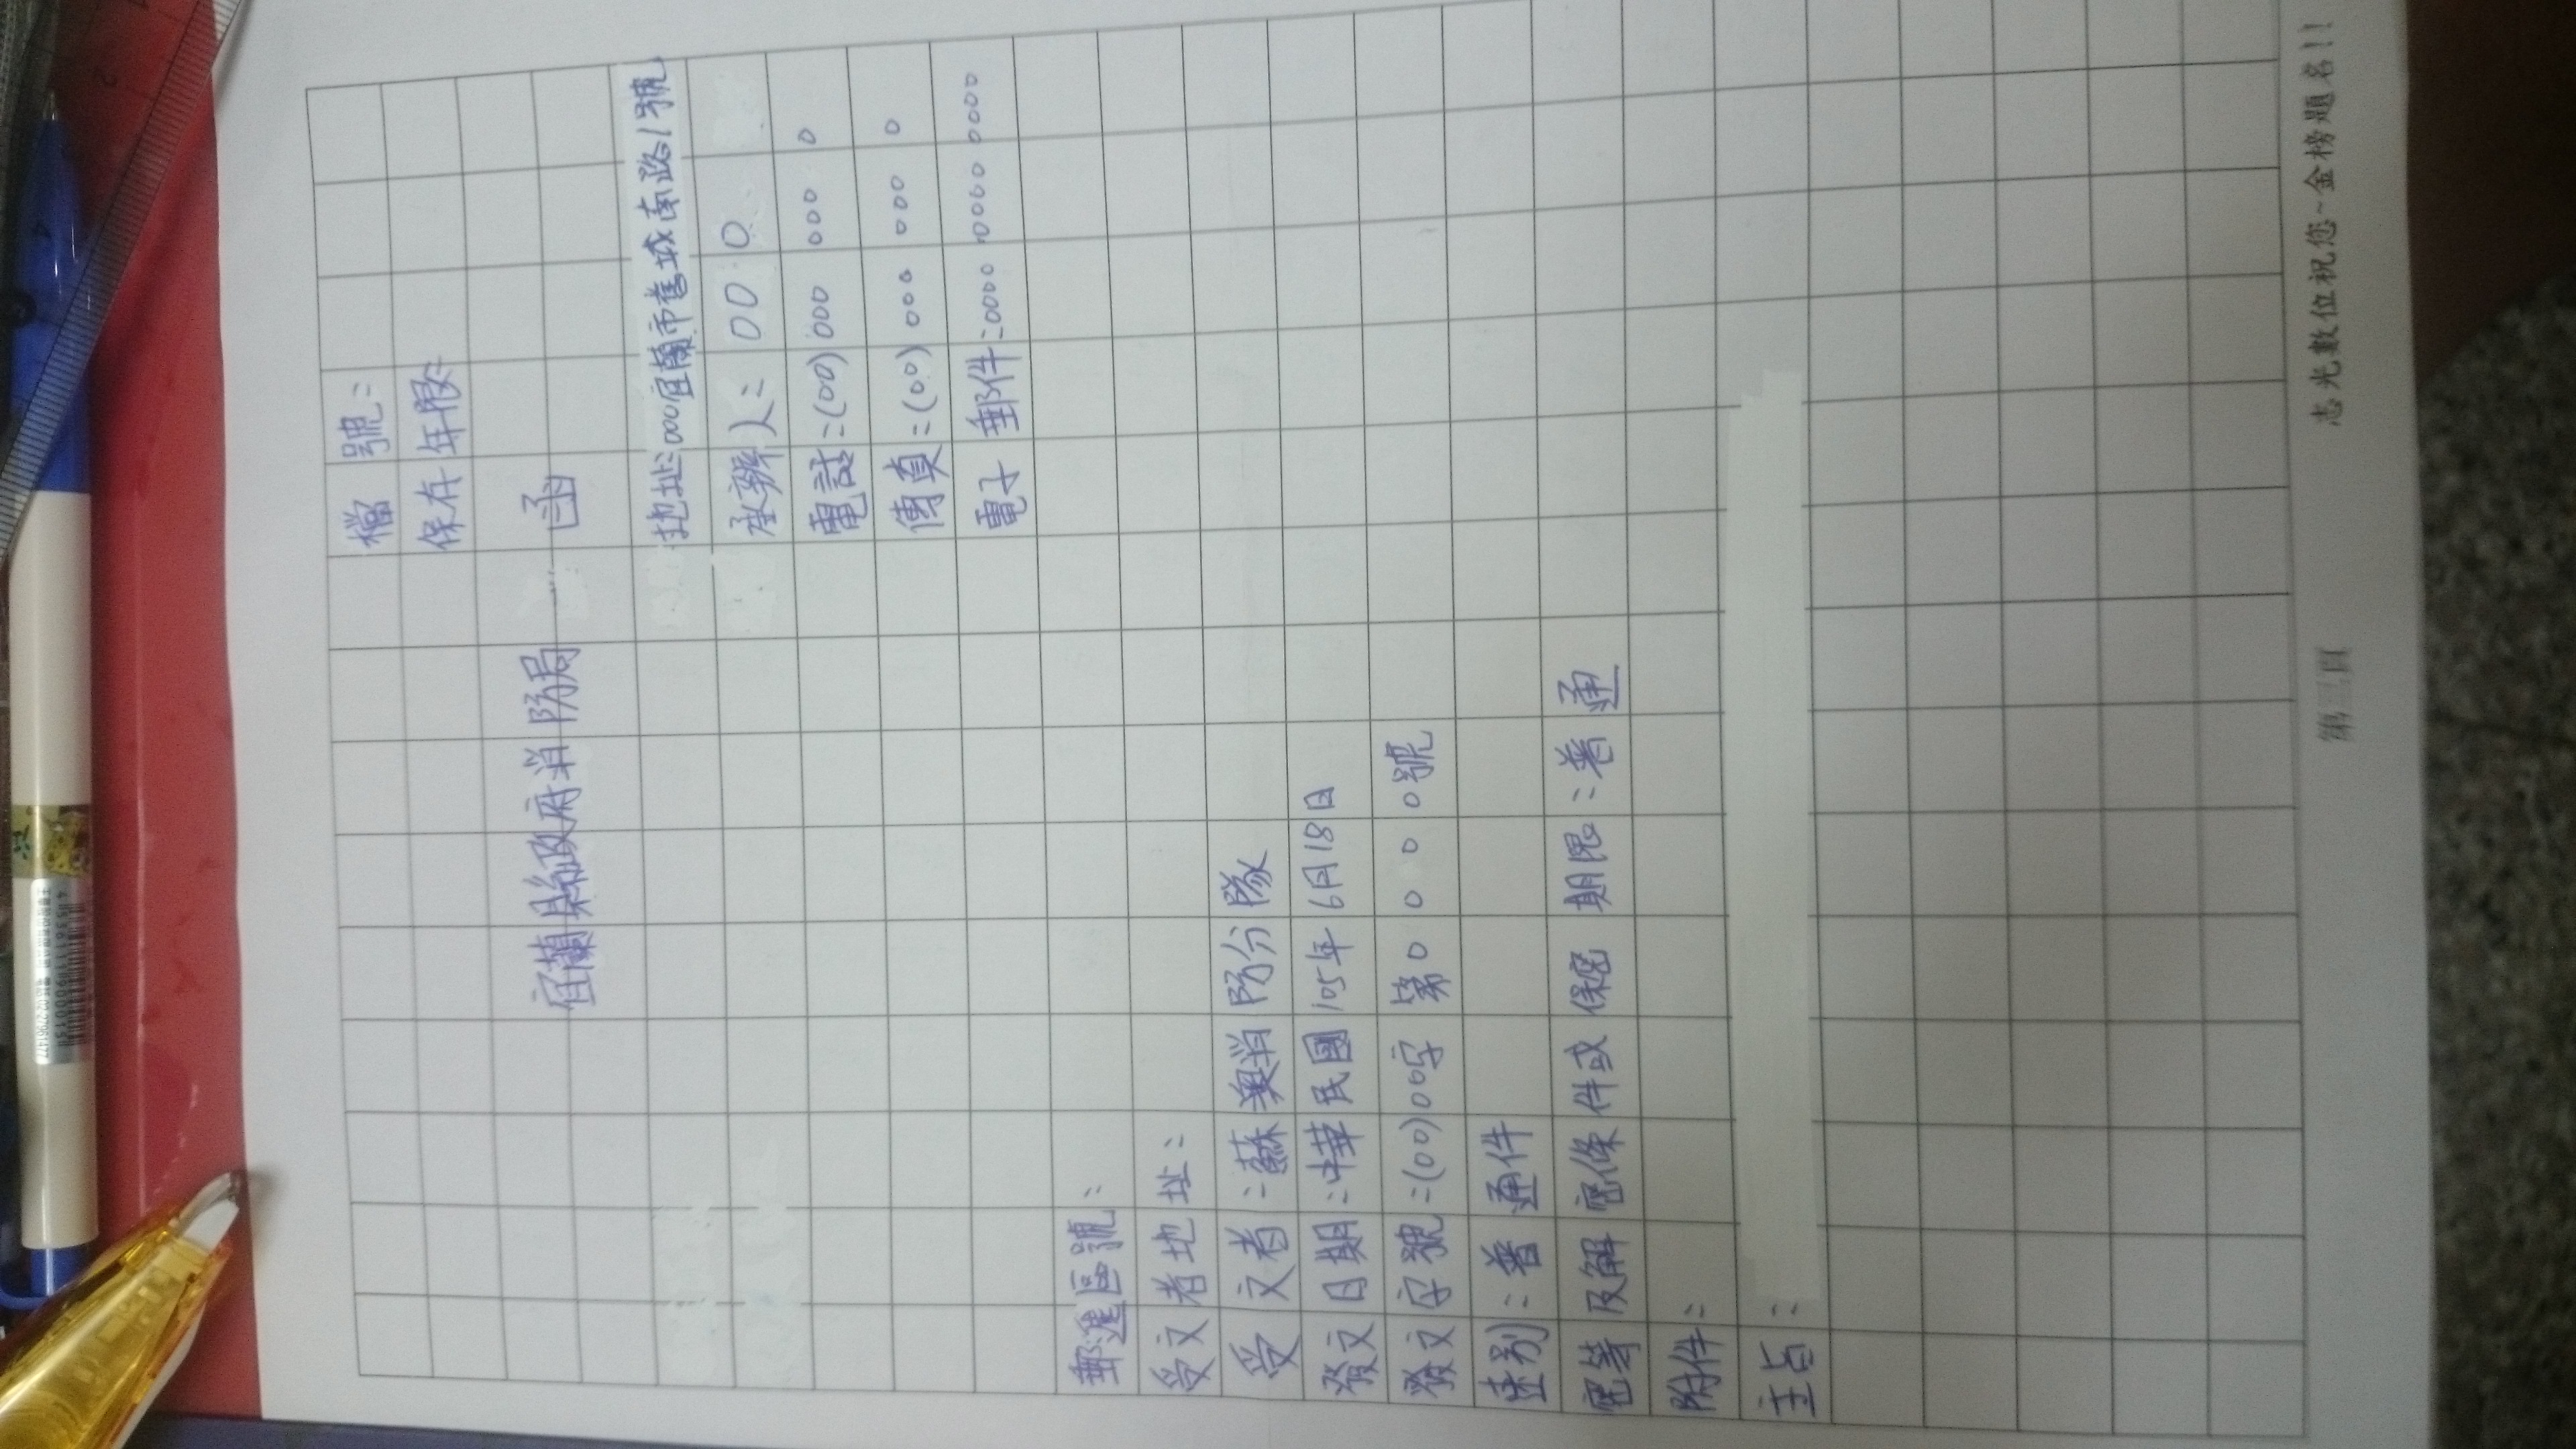 檔　號：
保存年限：
宜蘭縣政府消防局　函
地址：000宜蘭市舊城南路1號
承辦人：000
電話：(00)000 000 0
傳真：(00)000 000 0
電子郵件：0000 0000 0000
郵遞區號：
受文者地址：
受文者：蘇澳消防分隊
發文日期：中華民國105年6月18日
發文字號：(00)00字第00000號
速別：普通件
密等及解密條件或保密期限：普通
附件：
主旨：
第二頁　志光數位祝您~金榜題名!!
4 153611 900015